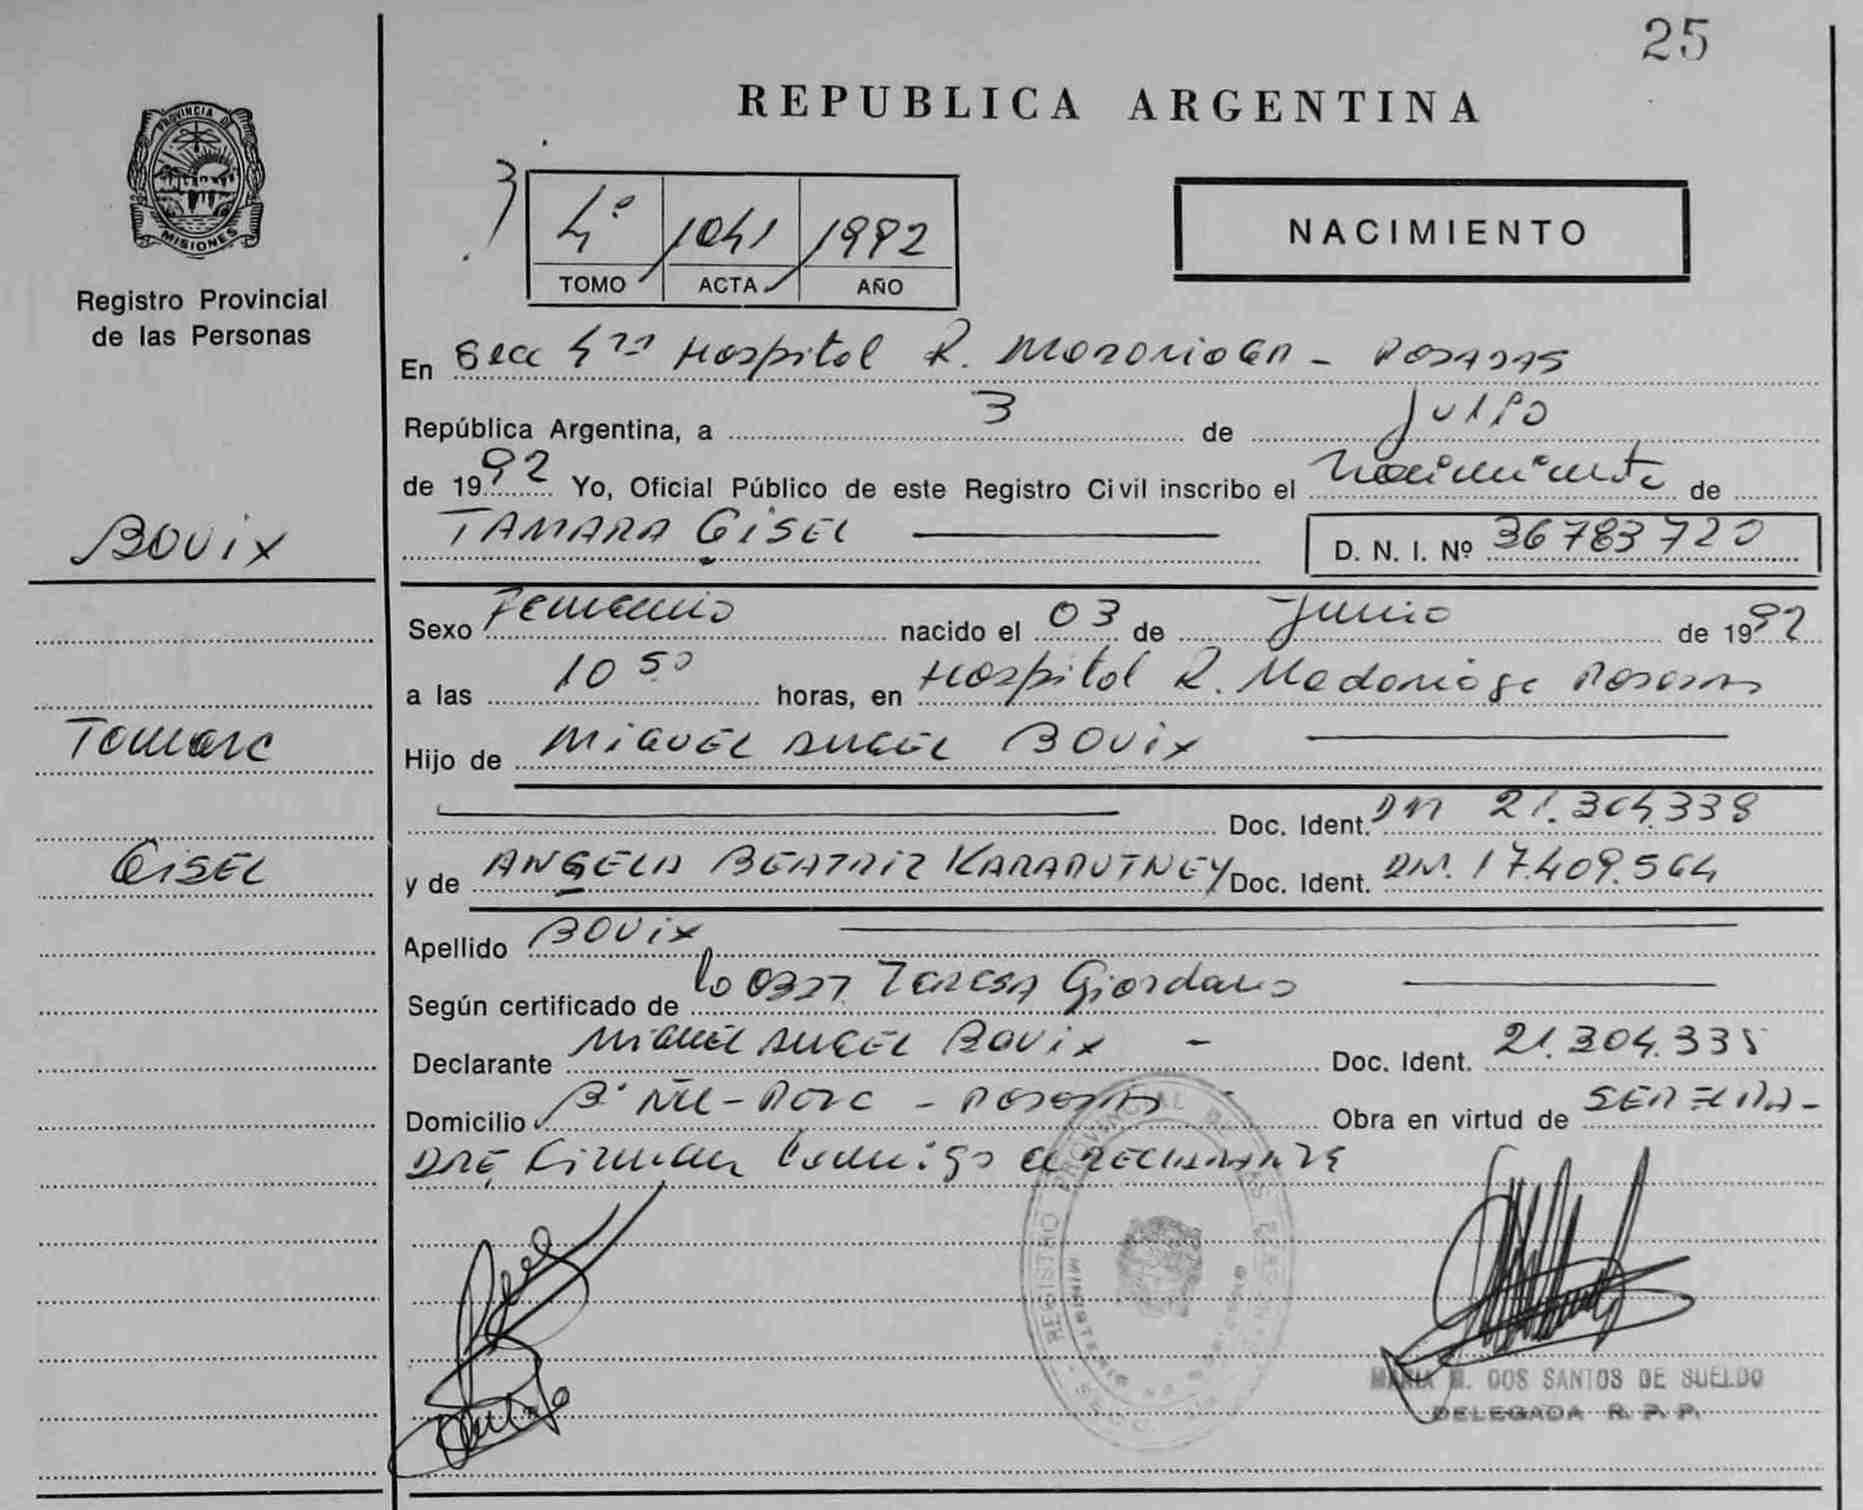 25
REPUBLICA ARGENTINA
PROVINCIA DE
MISIONES
Registro Provincial
de las Personas
4º 1041 1992
TOMO ACTA AÑO
NACIMIENTO
En Secc 4ta Hospital R. Madariaga - Posadas
República Argentina, a 3 de Julio
de 1992 Yo, Oficial Público de este Registro Civil inscribo el nacimiento de
BOVIX
TAMARA GISEL D. N. I. Nº 36783720
Sexo Femenino nacido el 03 de Junio de 1992
a las 10 50 horas, en Hospital R. Madariaga Posadas
Tamara
Hijo de MIGUEL ANGEL BOVIX
Doc. Ident. DNI 21.304.338
GISEL
y de ANGELA BEATRIZ KARARUTNEY Doc. Ident. DNI. 17.409.564
Apellido BOVIX
Según certificado de Teresa Giordano
Declarante MIGUEL ANGEL BOVIX - Doc. Ident. 21.304.338
Domicilio Bº - Posadas Obra en virtud de SER EL PA-
DRE, Firman conmigo el DECLARANTE
REGISTRO PROVINCIAL DE LAS PERSONAS
MARIA M. DOS SANTOS DE SUELDO
DELEGADA R. P. P.